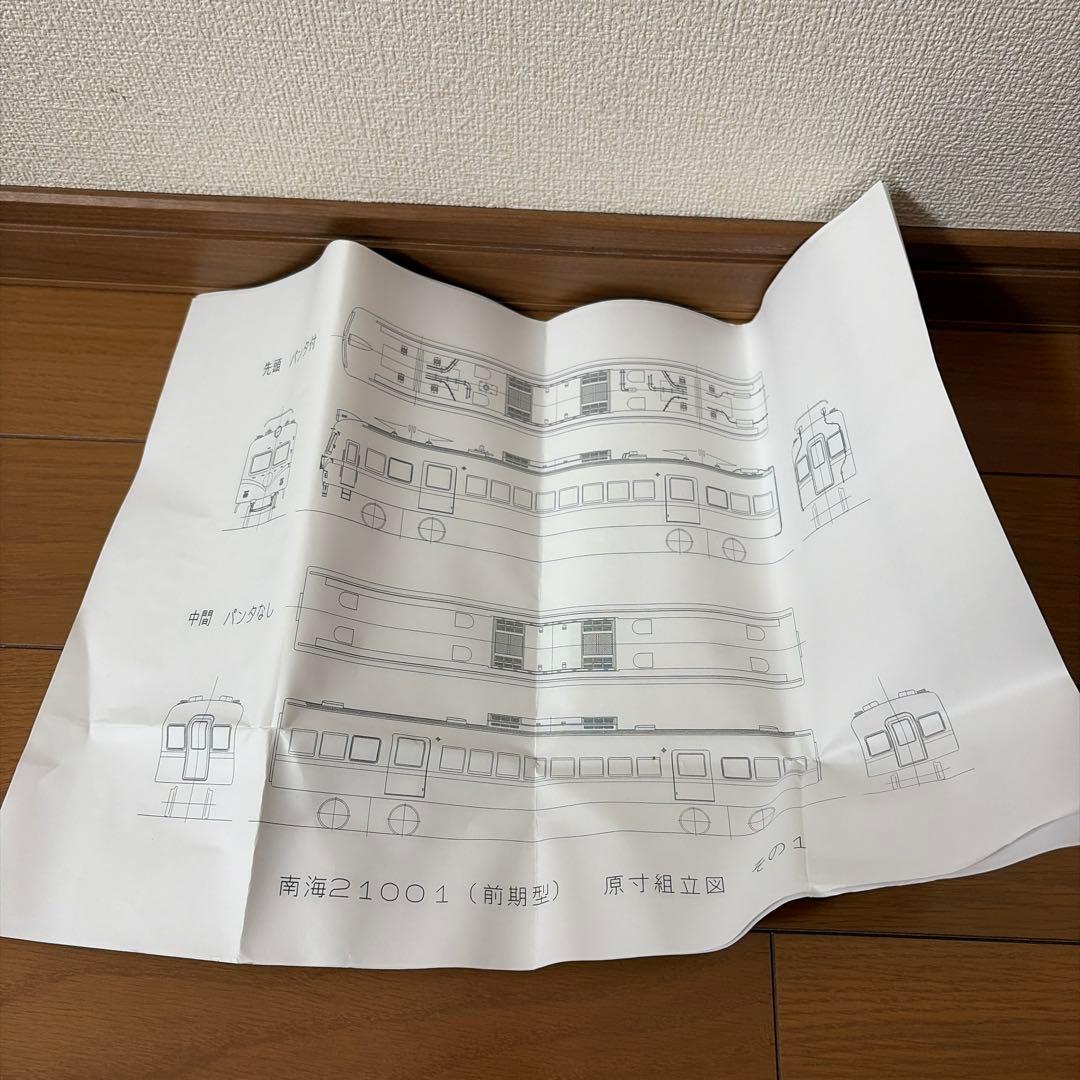 先頭 パンタ付
中間 パンタなし
南海21001(前期型) 原寸組立図 その1